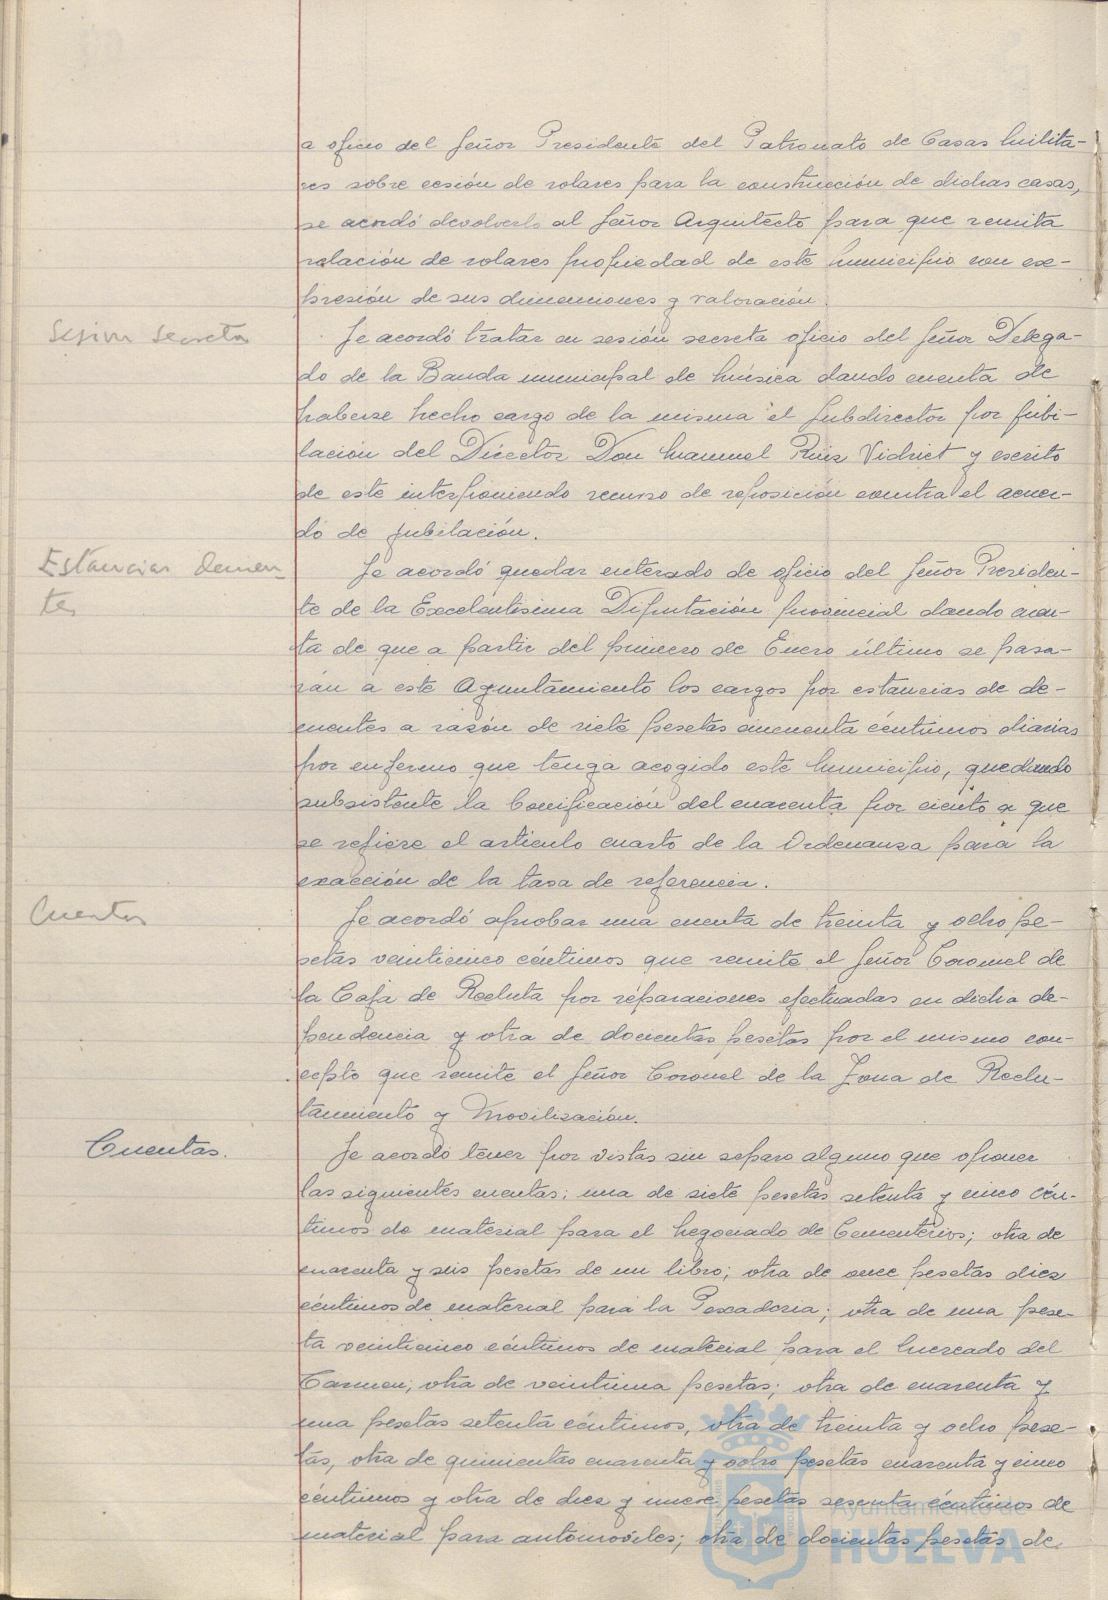 a oficio del Señor Presidente del Patronato de Casas Milita-
res sobre cesión de solares para la construcción de dichas casas,
se acordó devolverlo al Señor Arquitecto para que remita
relación de solares propiedad de este Municipio con ex-
presión de sus dimensiones y valoración.
Sesion Secreta
Se acordó tratar en sesión secreta oficio del Señor Delega-
do de la Banda municipal de Música dando cuenta de
haberse hecho cargo de la misma el Subdirector por jubi-
lación del Director Don Manuel Ruiz Vidriet y escrito
de este interponiendo recurso de reposición contra el acuer-
do de jubilación.
Estancias demen-
tes
Se acordó quedar enterado de oficio del Señor Presiden-
te de la Excelentísima Diputación provincial dando cuen-
ta de que a partir del primero de Enero último se pasa-
rán a este Ayuntamiento los cargos por estancias de de-
mentes a razón de siete pesetas cincuenta céntimos diarias
por enfermo que tenga acogido este Municipio, quedando
subsistente la bonificación del cuarenta por ciento a que
se refiere el artículo cuarto de la Ordenanza para la
exacción de la tasa de referencia.
Cuentas
Se acordó aprobar una cuenta de treinta y ocho pe-
setas veinticinco céntimos que remite el Señor Coronel de
la Caja de Recluta por reparaciones efectuadas en dicha de-
pendencia y otra de docientas pesetas por el mismo con-
cepto que remite el Señor Coronel de la Zona de Reclu-
tamiento y Movilización.
Cuentas.
Se acordó tener por vistas sin reparo alguno que oponer
las siguientes cuentas: una de siete pesetas setenta y cinco cén-
timos de material para el Negociado de Cementerios; otra de
cuarenta y seis pesetas de un libro; otra de once pesetas diez
céntimos de material para la Pescaderia; otra de una pese-
ta veinticinco céntimos de material para el Mercado del
Carmen; otra de veintiuna pesetas; otra de cuarenta y
una pesetas setenta céntimos, otra de treinta y ocho pese-
tas, otra de quinientas cuarenta y ocho pesetas cuarenta y cinco
céntimos y otra de diez y nueve pesetas sesenta céntimos de
material para automoviles; otra de docientas pesetas de
Ayuntamiento de
HUELVA